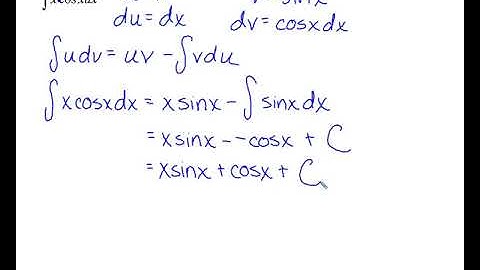 du = dx dv = cosx dx
∫udv = uv − ∫vdu
∫xcosxdx = xsinx − ∫sinx dx
= xsinx − −cosx + C
= xsinx + cosx + C